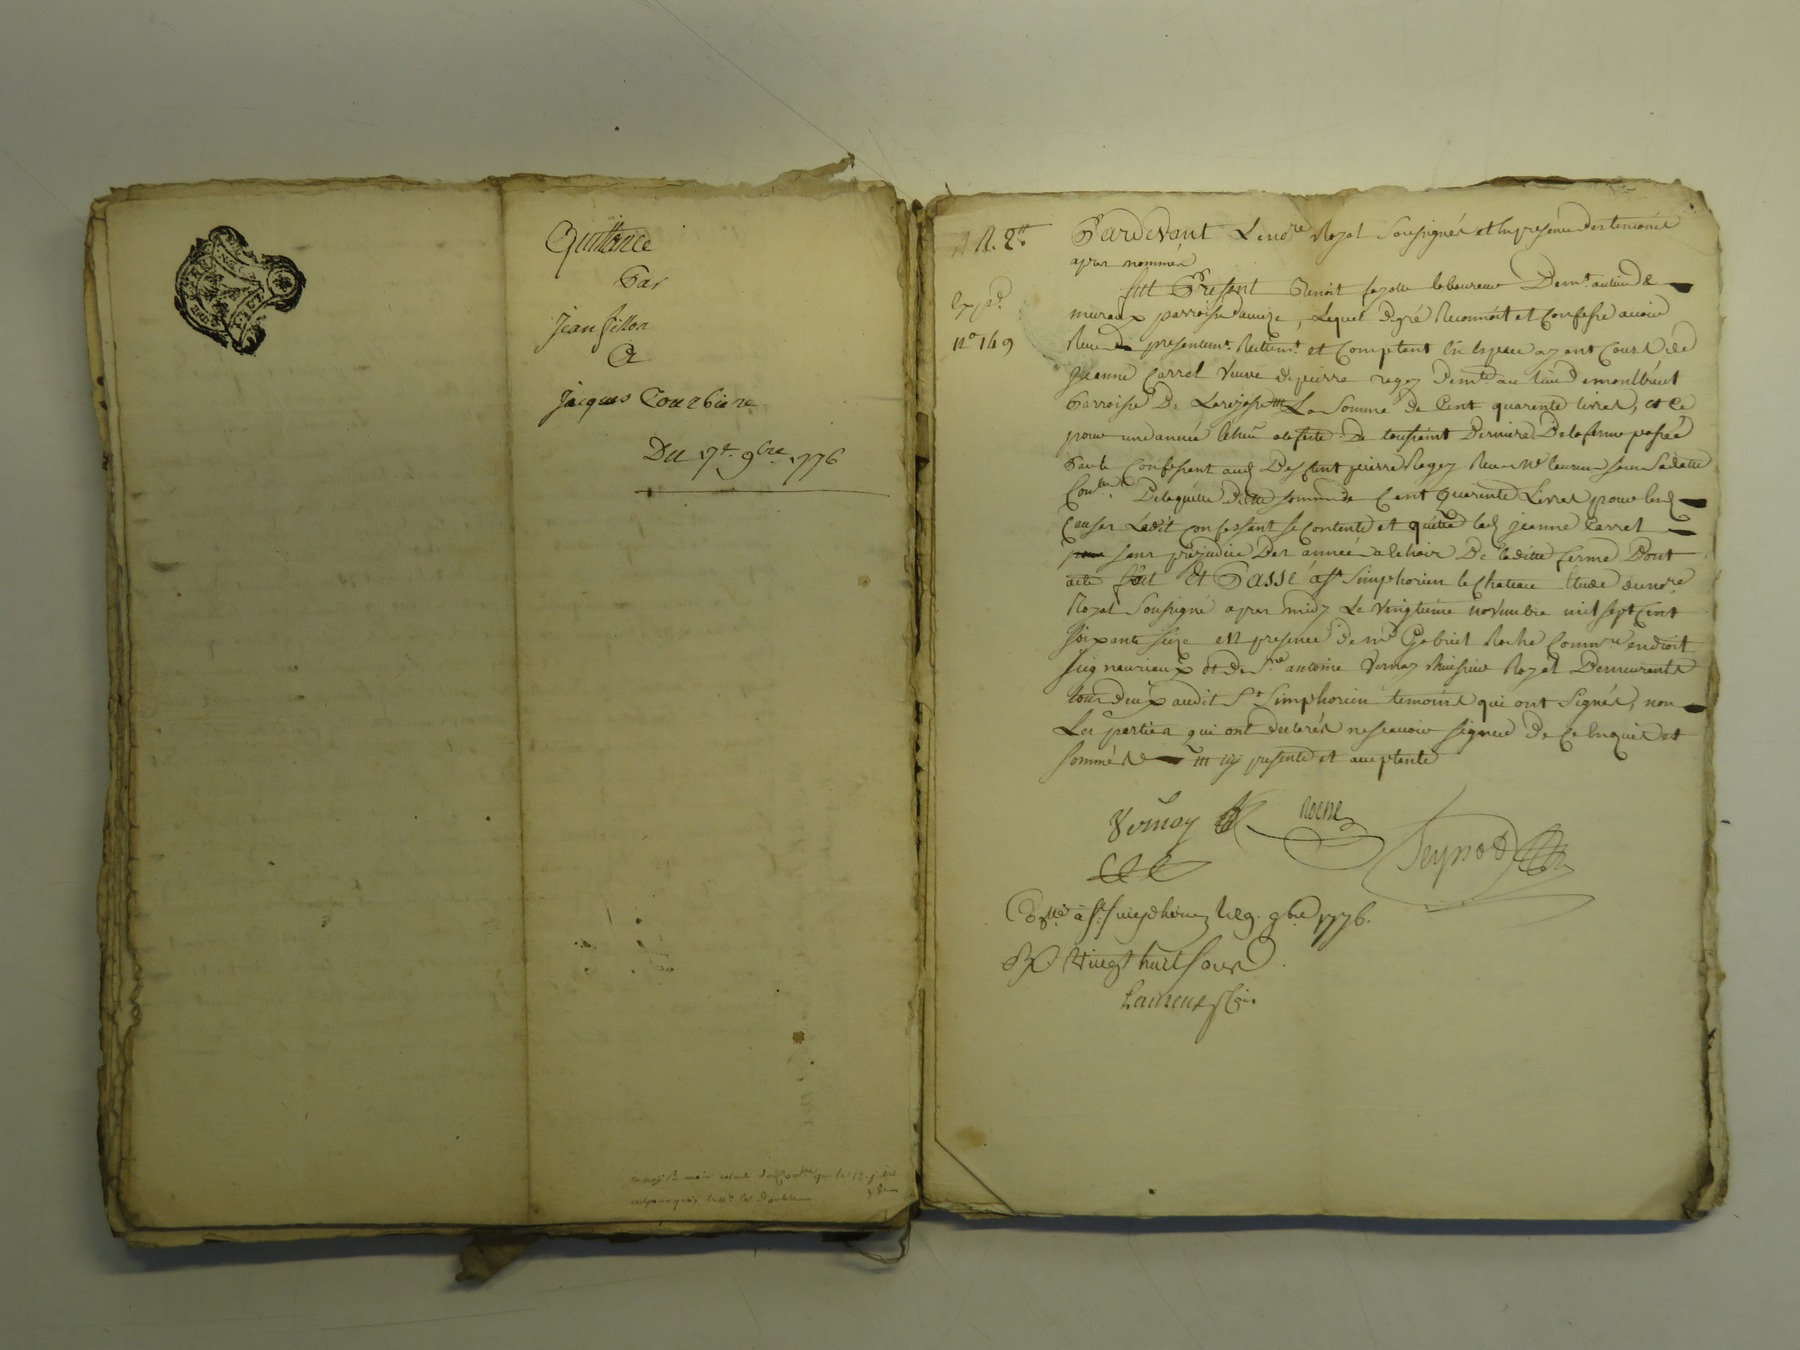 Quittance
Par
Jean fillon
A
Jacques Courbiere
Du 17e. 9bre. 1776
R. 2tt
Expd.
n° 149
Pardevant Le nore Royal Sousignés et En presence des temoins
apres nommés
fut Present Benoit fayolle laboureur Demt. au lieu de
muraux parroisse d'aveize, Lequel de gré Reconnoit et Confesse avoir
Receu presentemt. Reellemt. et Comptant En Espece ayant Cours de
jeanne Carret Veuve de pierre ragey Demte au lieu de
Parroisse De Larajasse La Somme de Cent quarente livres, et Ce
pour une année Echeue a la feste De toussaint Derniere De la ferme passée
Par le Confessant aud. Deffunt pierre Ragey Receu Me
De laquelle Ditte somme de Cent Quarente Livres pour led.
Causes Ledit Confessant se Contente et quitte lad. jeanne Carret
sans prejudice Des années a Echoir De laditte ferme Dont
acte Fait Et Passé a St. Simphorien le Chateau Etude du nore
Royal Sousigné apres midy Le Vingtieme novembre mil sept Cent
soixante seize en presence De me Gabriel Roche Commre en droit
seigneuriaux et de Sre antoine Vernay huissier Royal Demeurants
tous deux audit St Simphorien temoins qui ont Signés, non
Les parties qui ont declarés ne scavoir signer De Ce Enquis et
sommés icy presente et acceptante
Vernay
Roche
Seynod
Collé à St. Simphorien le 29. 9bre 1776.
R Vingt huit sous
Laurent